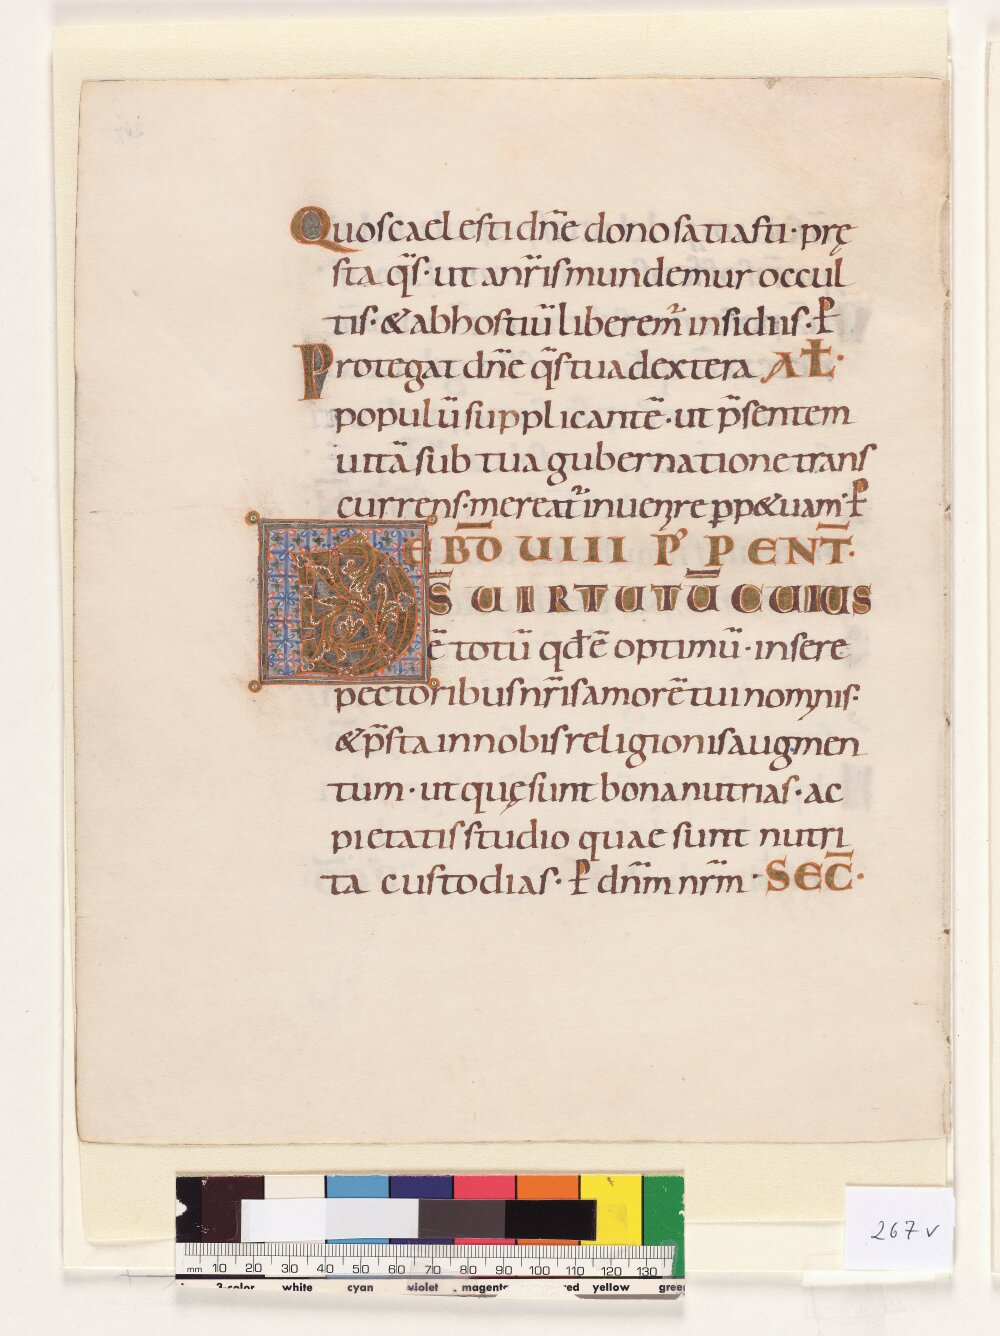 Quos cael esti dn̄e dono satiasti· prę
sta q̄s· ut a nr̄is mundemur occul
tis· & ab hostiū liberem̄ insidiis· P̄
Protegat dn̄e q̄s tua dextera AL̄·
populū supplicantē· ut p̄sentem
uitā sub tua gubernatione trans
currens· mereat̄ inuenire pp&uam· P̄
EBD̄ UIIII P' PENT̄·
D S̄ UIRTUTŪ CUIUS
ē totū qd̄ ē optimū· insere
pectoribus nr̄is amorē tui nominis·
& p̄sta in nobis religionis augmen
tum· ut quę sunt bona nutrias· ac
pietatis studio quae sunt nutri
ta custodias· P̄ dn̄m nr̄m· SEC̄·
mm 10 20 30 40 50 60 70 80 90 100 110 120 130
3-color white cyan violet magenta red yellow green
267 v